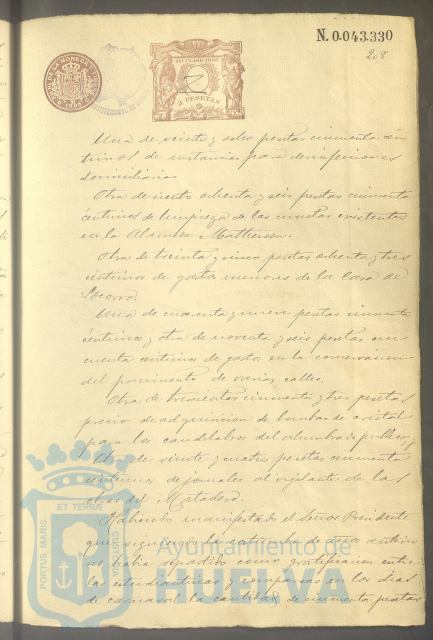 N. 0.043.330
208
DE LA MONEDA Y TIMBRE
3 PESETAS
Una de veinte y ocho pesetas cincuenta cén
timos de sustancias para desinfecciones
domiciliarias.
Otra de ciento ochenta y seis pesetas cincuenta
céntimos de limpieza de las cunetas existentes
en la Alameda Matheson.
Otra de treinta y cinco pesetas ochenta y tres
céntimos de gastos menores de la Casa de
Socorro.
Una de cuarenta y nueve pesetas cincuenta
céntimos y otra de noventa y seis pesetas cin
cuenta céntimos de gastos en la conservacion
del pavimento de varias calles.
Otra de trescientas cincuenta y tres pesetas
precio de adquisicion de bombas de cristal
para los candelabros del alumbrado publico, y
Otra de veinte y cuatro pesetas cincuenta
céntimos de jornales al vigilante de las
obras del Matadero.
Habiendo manifestado el Señor Presidente
que siguiendo la costumbre de años anterio
res habia repartido como gratificacion entre
las estudiantinas y comparsas en los dias
de carnaval la cantidad de cincuenta pesetas
PORTUS MARIS ET TERRÆ CUSTODIA
Ayuntamiento de
HUELVA